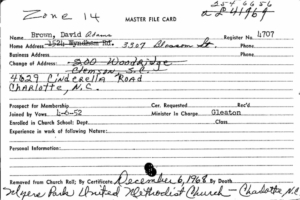 Zone 14
254 6686
MASTER FILE CARD
a 2 41969
Name Brown, David Adams Register No. 4707
Home Address 1524 Wyndham Rd. 3507 Gleason St. Phone
Business Address Phone
Change of Address: 200 Woodridge
Clemson, S.C.
4829 Cinderella Road
Charlotte, N.C.
Prospect for Membership Cer. Requested Rec'd
Joined by Vows 4-6-52 Minister in Charge Gleaton
Enrolled in Church School: Dept. Class
Experience in work of following Nature:
Personal Information:
Removed from Church Roll; By Certificate December 6, 1968 By Death
Myers Park United Methodist Church - Charlotte, N.C.